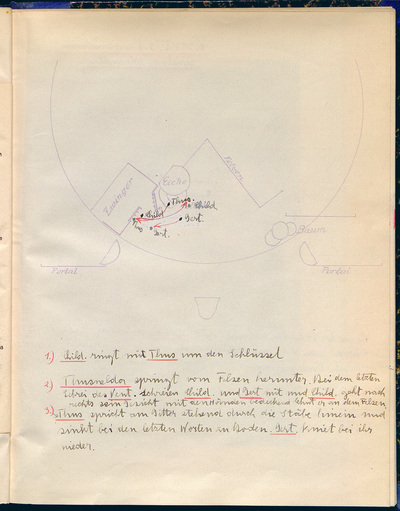 Zwinger
Eiche
Felsen
Thus.
Child
Child
Gert.
Thus
Gert.
Baum
Portal
Portal
1.) Child. ringt mit Thus um den Schlüssel
2) Thusnelda springt vom Felsen herunter. Bei dem letzten
Schrei des Vent. schreien Child. und Gert mit und Child. geht nach
rechts sein Gesicht mit den Händen bedeckend lehnt er an dem Felsen
3.) Thus spricht am Gitter stehend durch die Stäbe hinein und
sinkt bei den letzten Worten zu Boden. Gert. kniet bei ihr
nieder.